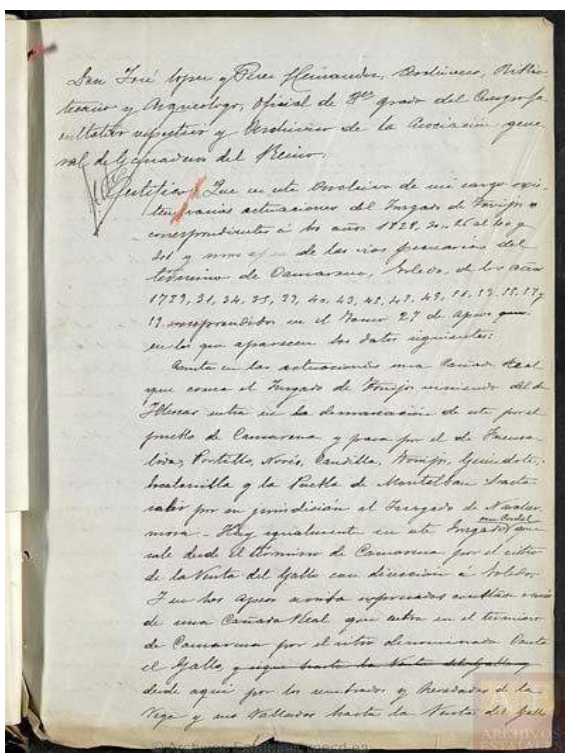 Don José Lopez y Perez Hernandez, Archivero, Biblio
tecario y Arqueologo, Oficial de 3er grado del Cuerpo fa
cultativo respectivo y Archivero de la Asociación gene
ral de Ganaderos del Reino.
Certifico: Que en este Archivo de mi cargo exis
ten varias actuaciones del Juzgado de Torrijos
correspondientes á los años 1828, 30
y unos apeos de las vias pecuarias del
término de Camarena, Toledo, de los años
1729, 31, 34, 35, 39, 40, 43,
comprendidos en el Tomo 27 de Apeos
en los que aparecen los datos siguientes:
Consta en las actuaciones una Cañada Real
que coma el Juzgado de Torrijos viniendo del de
Illescas entra en la demarcación de este por el
pueblo de Camarena, y pasa por el de Fuensa
lida, Portillo, Novés, Caudilla, Torrijos, Gerindote,
Escalonilla y la Puebla de Montalban hasta
salir por su jurisdicción al Juzgado de Navaher
mosa. Hay igualmente en este Juzgado un Cordel que
sale desde el término de Camarena por el sitio
de la Venta del Gallo con dirección á Toledo.
Y en los Apeos arriba expresados
de una Cañada Real que entra en el término
de Camarena por el sitio denominado Venta
el Gallo, y sigue hasta la Venta del Gallo y
desde aqui por los sembrados y heredades de la
Vega y sus Vallados hasta la Venta del Gallo
ARCHIVOS
© Archivos Estatales, mecd.es